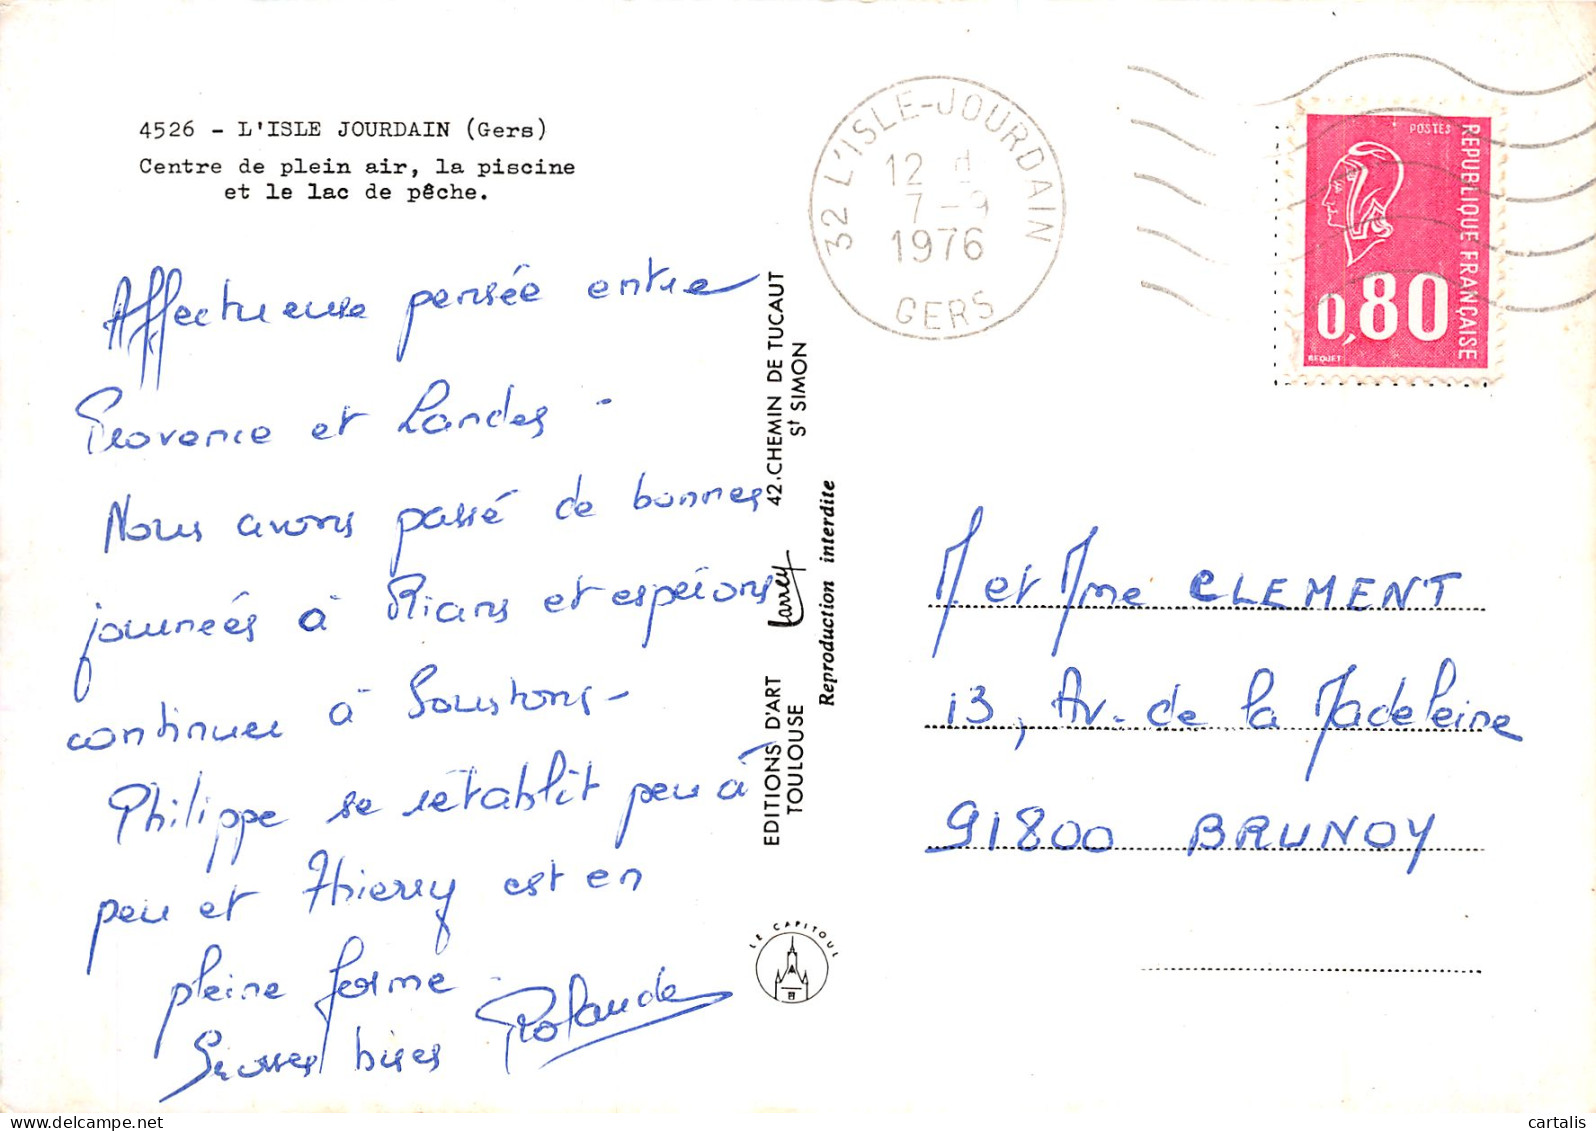 4526 - L'ISLE JOURDAIN (Gers)
Centre de plein air, la piscine
et le lac de pêche.
Affectueuse pensée entre
Provence et Landes -
Nous avons passé de bonnes
journées à Rians et espérons
continuer à Soustons -
Philippe se rétablit peu à
peu et Thierry est en
pleine forme.
Grosses bises Rolande
EDITIONS D'ART Larrey 42, CHEMIN DE TUCAUT
TOULOUSE St SIMON
Reproduction interdite
LE CAPITOUL
32 L'ISLE-JOURDAIN
12 H
7-9
1976
GERS
POSTES
REPUBLIQUE FRANÇAISE
0,80
BEQUET
M et Mme CLEMENT
13, Av. de la Madeleine
91800 BRUNOY
cartalis